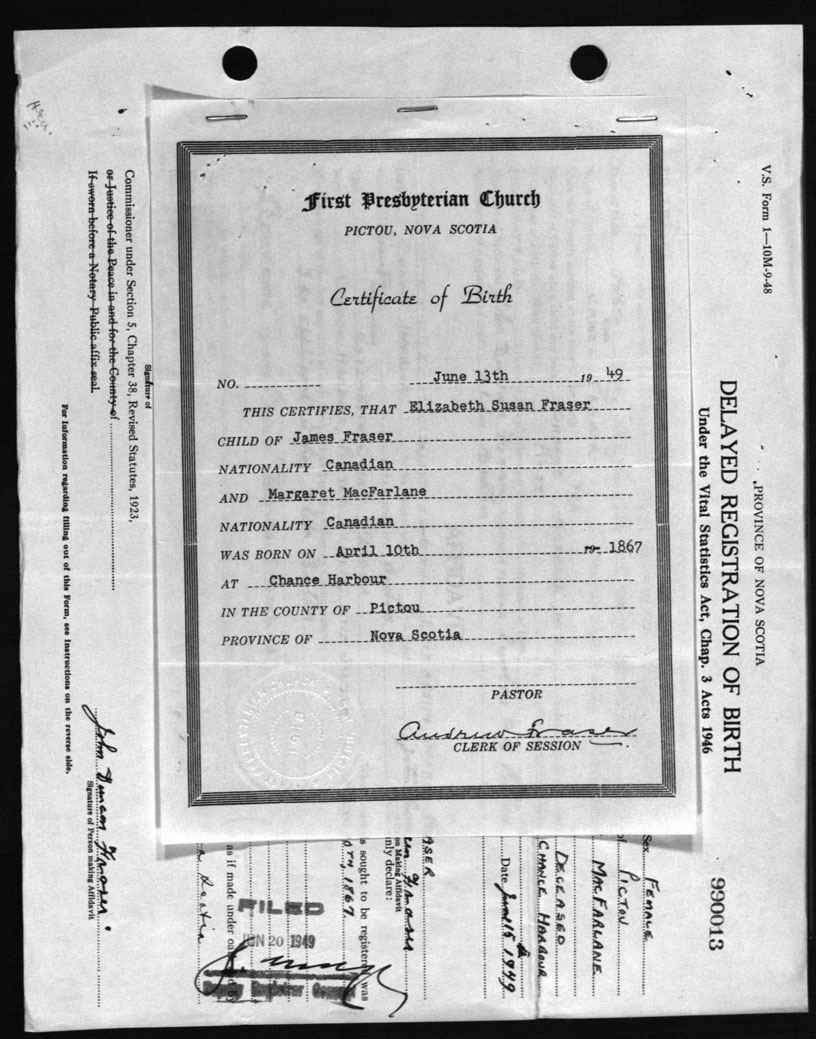 First Presbyterian Church
PICTOU, NOVA SCOTIA
Certificate of Birth
NO. June 13th 19 49
THIS CERTIFIES, THAT Elizabeth Susan Fraser
CHILD OF James Fraser
NATIONALITY Canadian
AND Margaret MacFarlane
NATIONALITY Canadian
WAS BORN ON April 10th 19 1867
AT Chance Harbour
IN THE COUNTY OF Pictou
PROVINCE OF Nova Scotia
PASTOR
Andrew Fraser
CLERK OF SESSION
V.S. Form 1—10M-9-48
PROVINCE OF NOVA SCOTIA
DELAYED REGISTRATION OF BIRTH
Under the Vital Statistics Act, Chap. 3 Acts 1946
990013
Sex FEMALE
of PICTOU
MACFARLANE
DECEASED
CHANCE HARBOUR
Date June 15th 1949
ASER
on Making Affidavit
nly declare:
s sought to be registered was
0TH 1867
as if made under oa
FILED
JUN 20 1949
Signature of
Commissioner under Section 5, Chapter 38, Revised Statutes, 1923,
or Justice of the Peace in and for the County of
If sworn before a Notary Public affix seal.
John Duncan Fraser
Signature of Person making Affidavit
For Information regarding filling out of this Form, see Instructions on the reverse side.